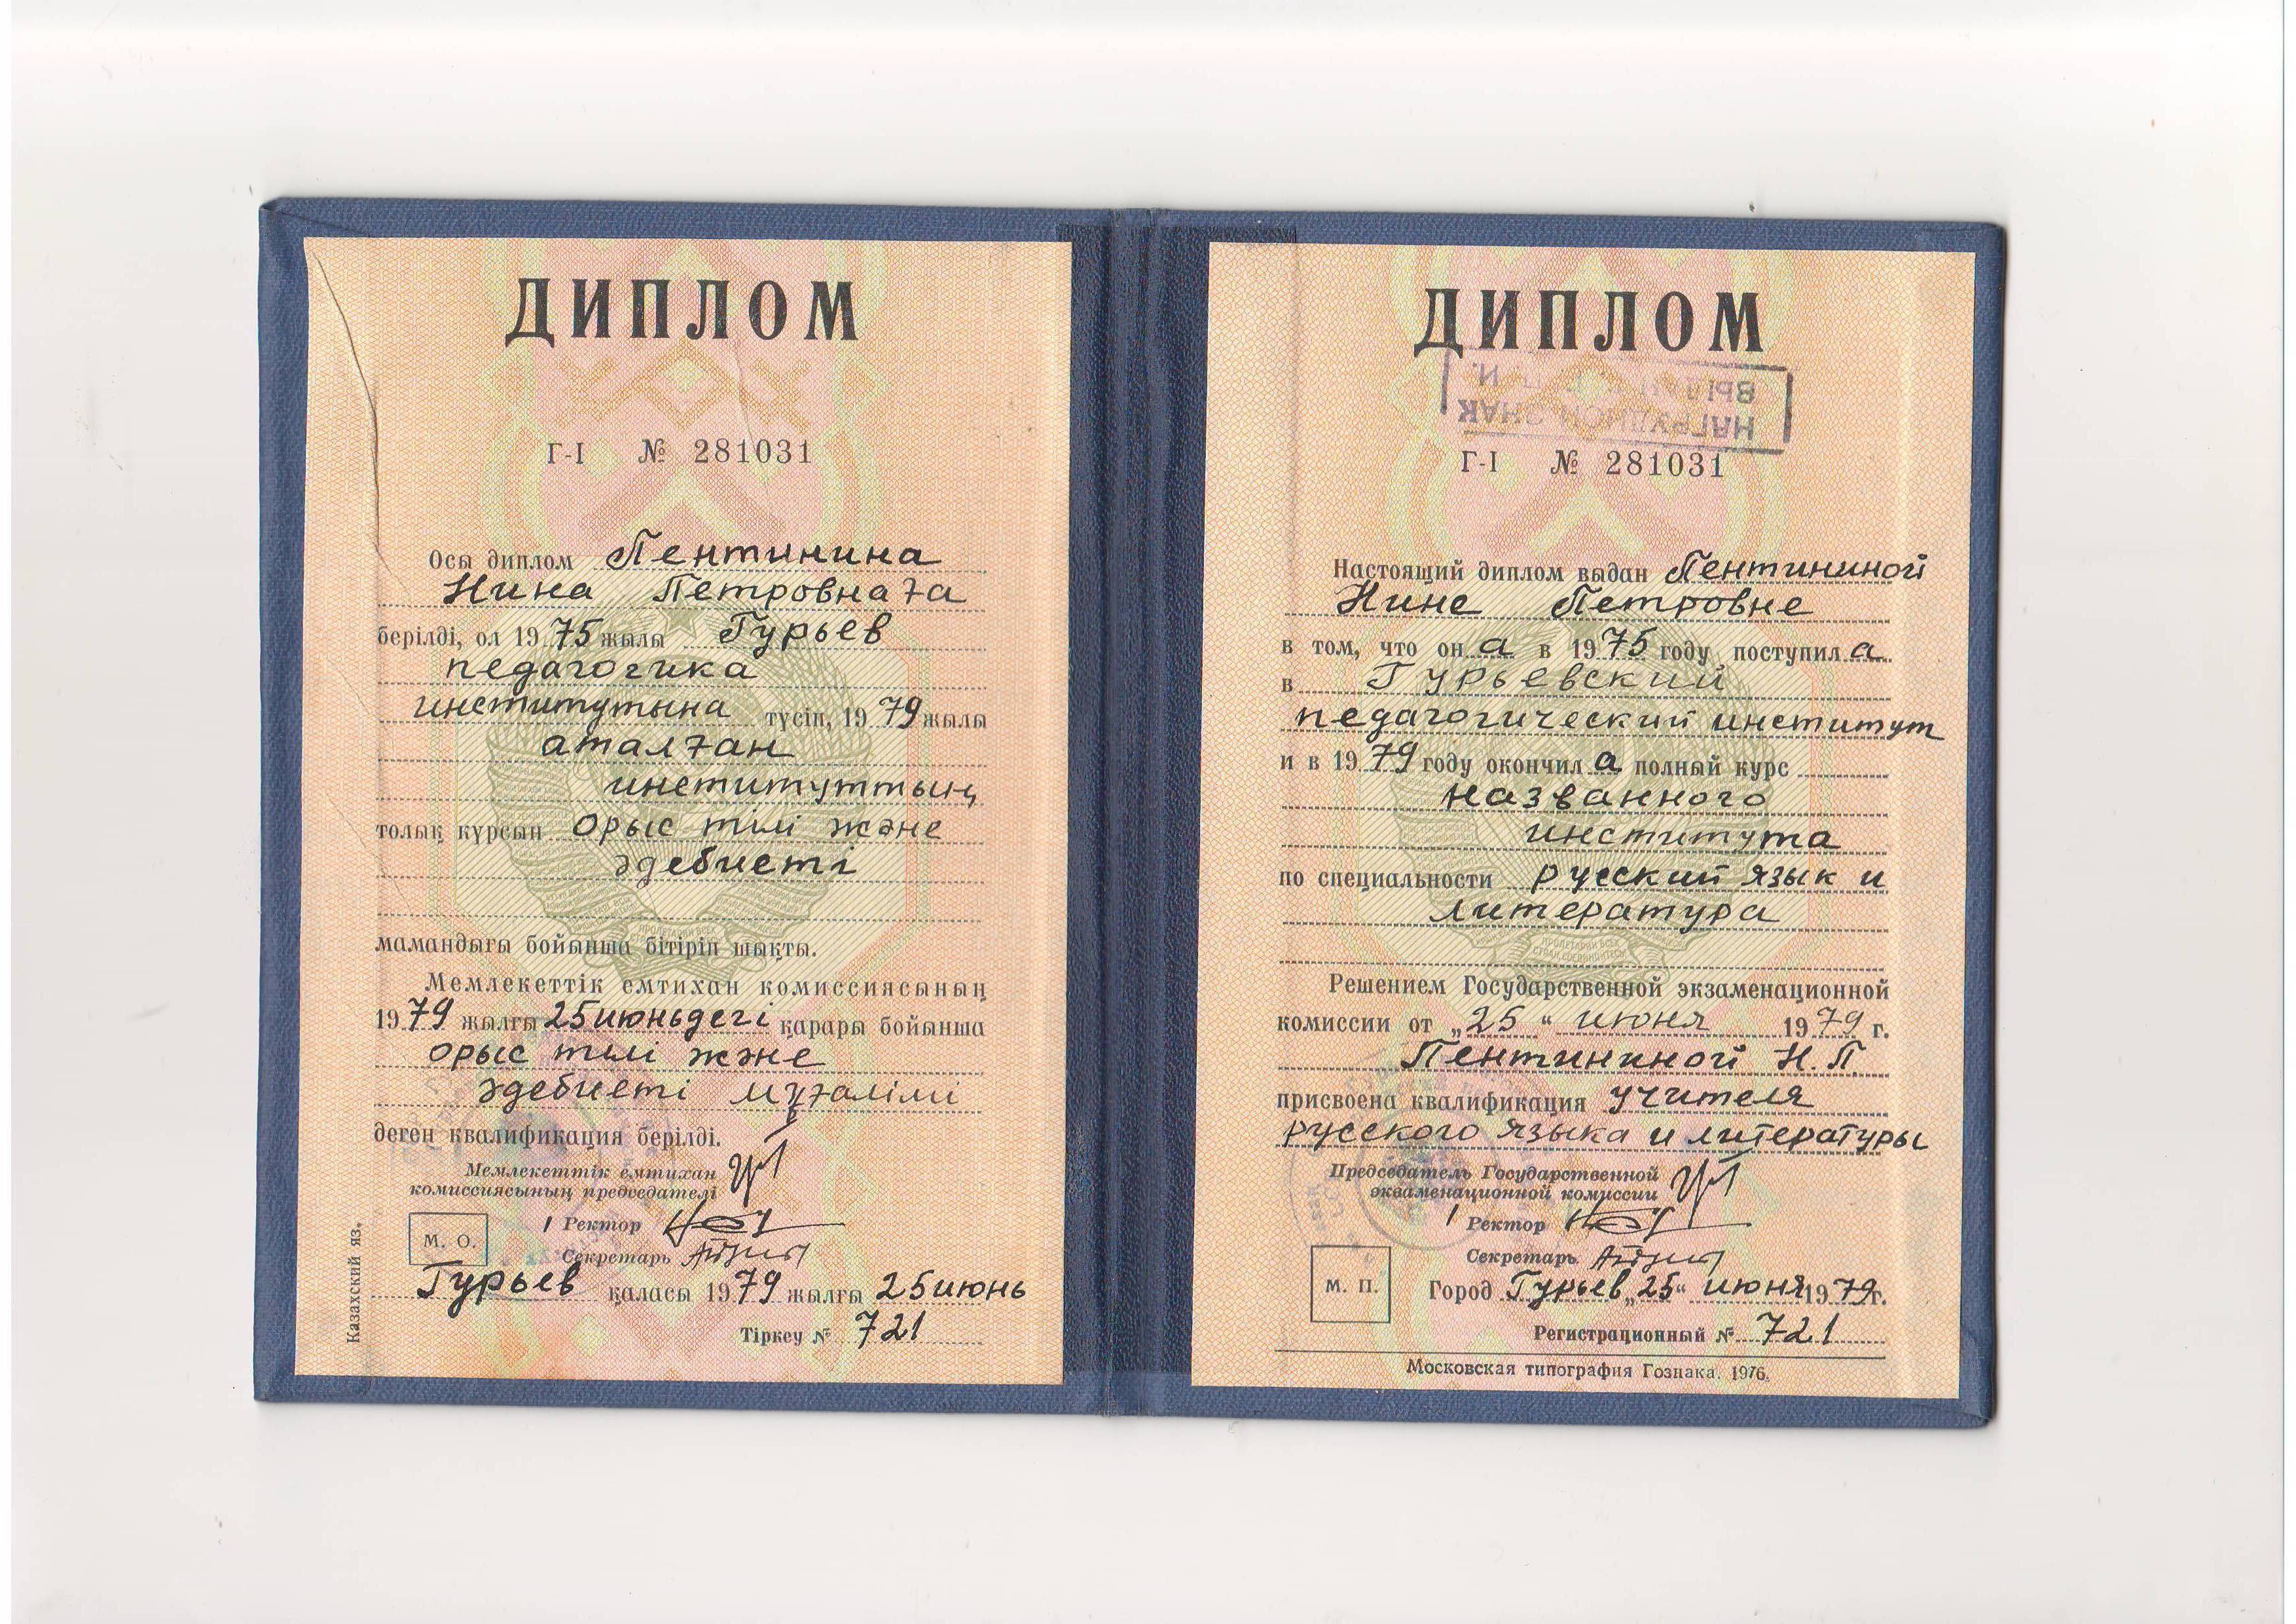 ДИПЛОМ
Г-I № 281031
Осы диплом Пентинина
Нина Петровнаға
берілді, ол 1975 жылы Гурьев
педагогика
институтына түсіп, 1979 жылы
аталған
институттың
толық курсын орыс тілі және
әдебиеті
мамандығы бойынша бітіріп шықты.
Мемлекеттік емтихан комиссиясының
1979 жылғы 25 июньдегі қарары бойынша
орыс тілі және
әдебиеті мұғалімі
деген квалификация берілді.
Мемлекеттік емтихан
комиссиясының председателі
Ректор
М. О.
Секретарь
Гурьев қаласы 1979 жылғы 25 июнь
Тіркеу № 721
Казахский яз.
ДИПЛОМ
НАГРУДНОЙ ЗНАК
ВЫДАН
Г-I № 281031
Настоящий диплом выдан Пентининой
Нине Петровне
в том, что она в 1975 году поступила
в Гурьевский
педагогический институт
и в 1979 году окончила полный курс
названного
института
по специальности русский язык и
литература
ПРОЛЕТАРИИ ВСЕХ
СТРАН, СОЕДИНЯЙТЕСЬ!
Решением Государственной экзаменационной
комиссии от „25“ июня 1979 г.
Пентининой Н.П.
присвоена квалификация учителя
русского языка и литературы
Председатель Государственной
экзаменационной комиссии
Ректор
Секретарь
М. П.
Город Гурьев „25“ июня 1979г.
Регистрационный № 721
Московская типография Гознака. 1976.